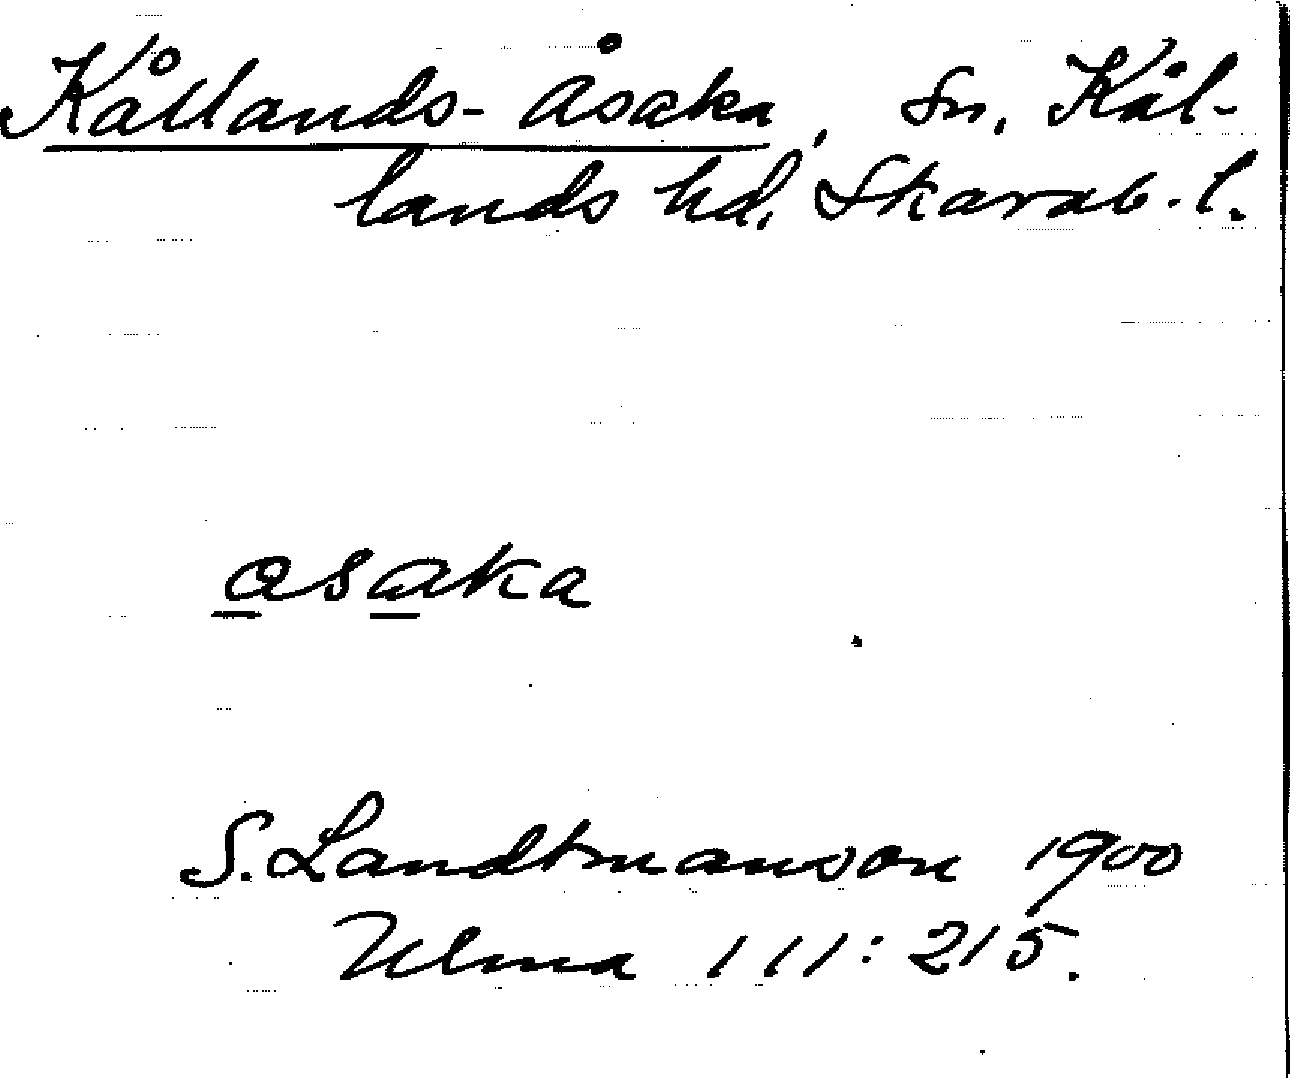 Kållands-Åsaka, Sn. Kål-
lands hd. Skarab. l.
åsaka
S. Landtmanson 1900
Ulma 111:215.